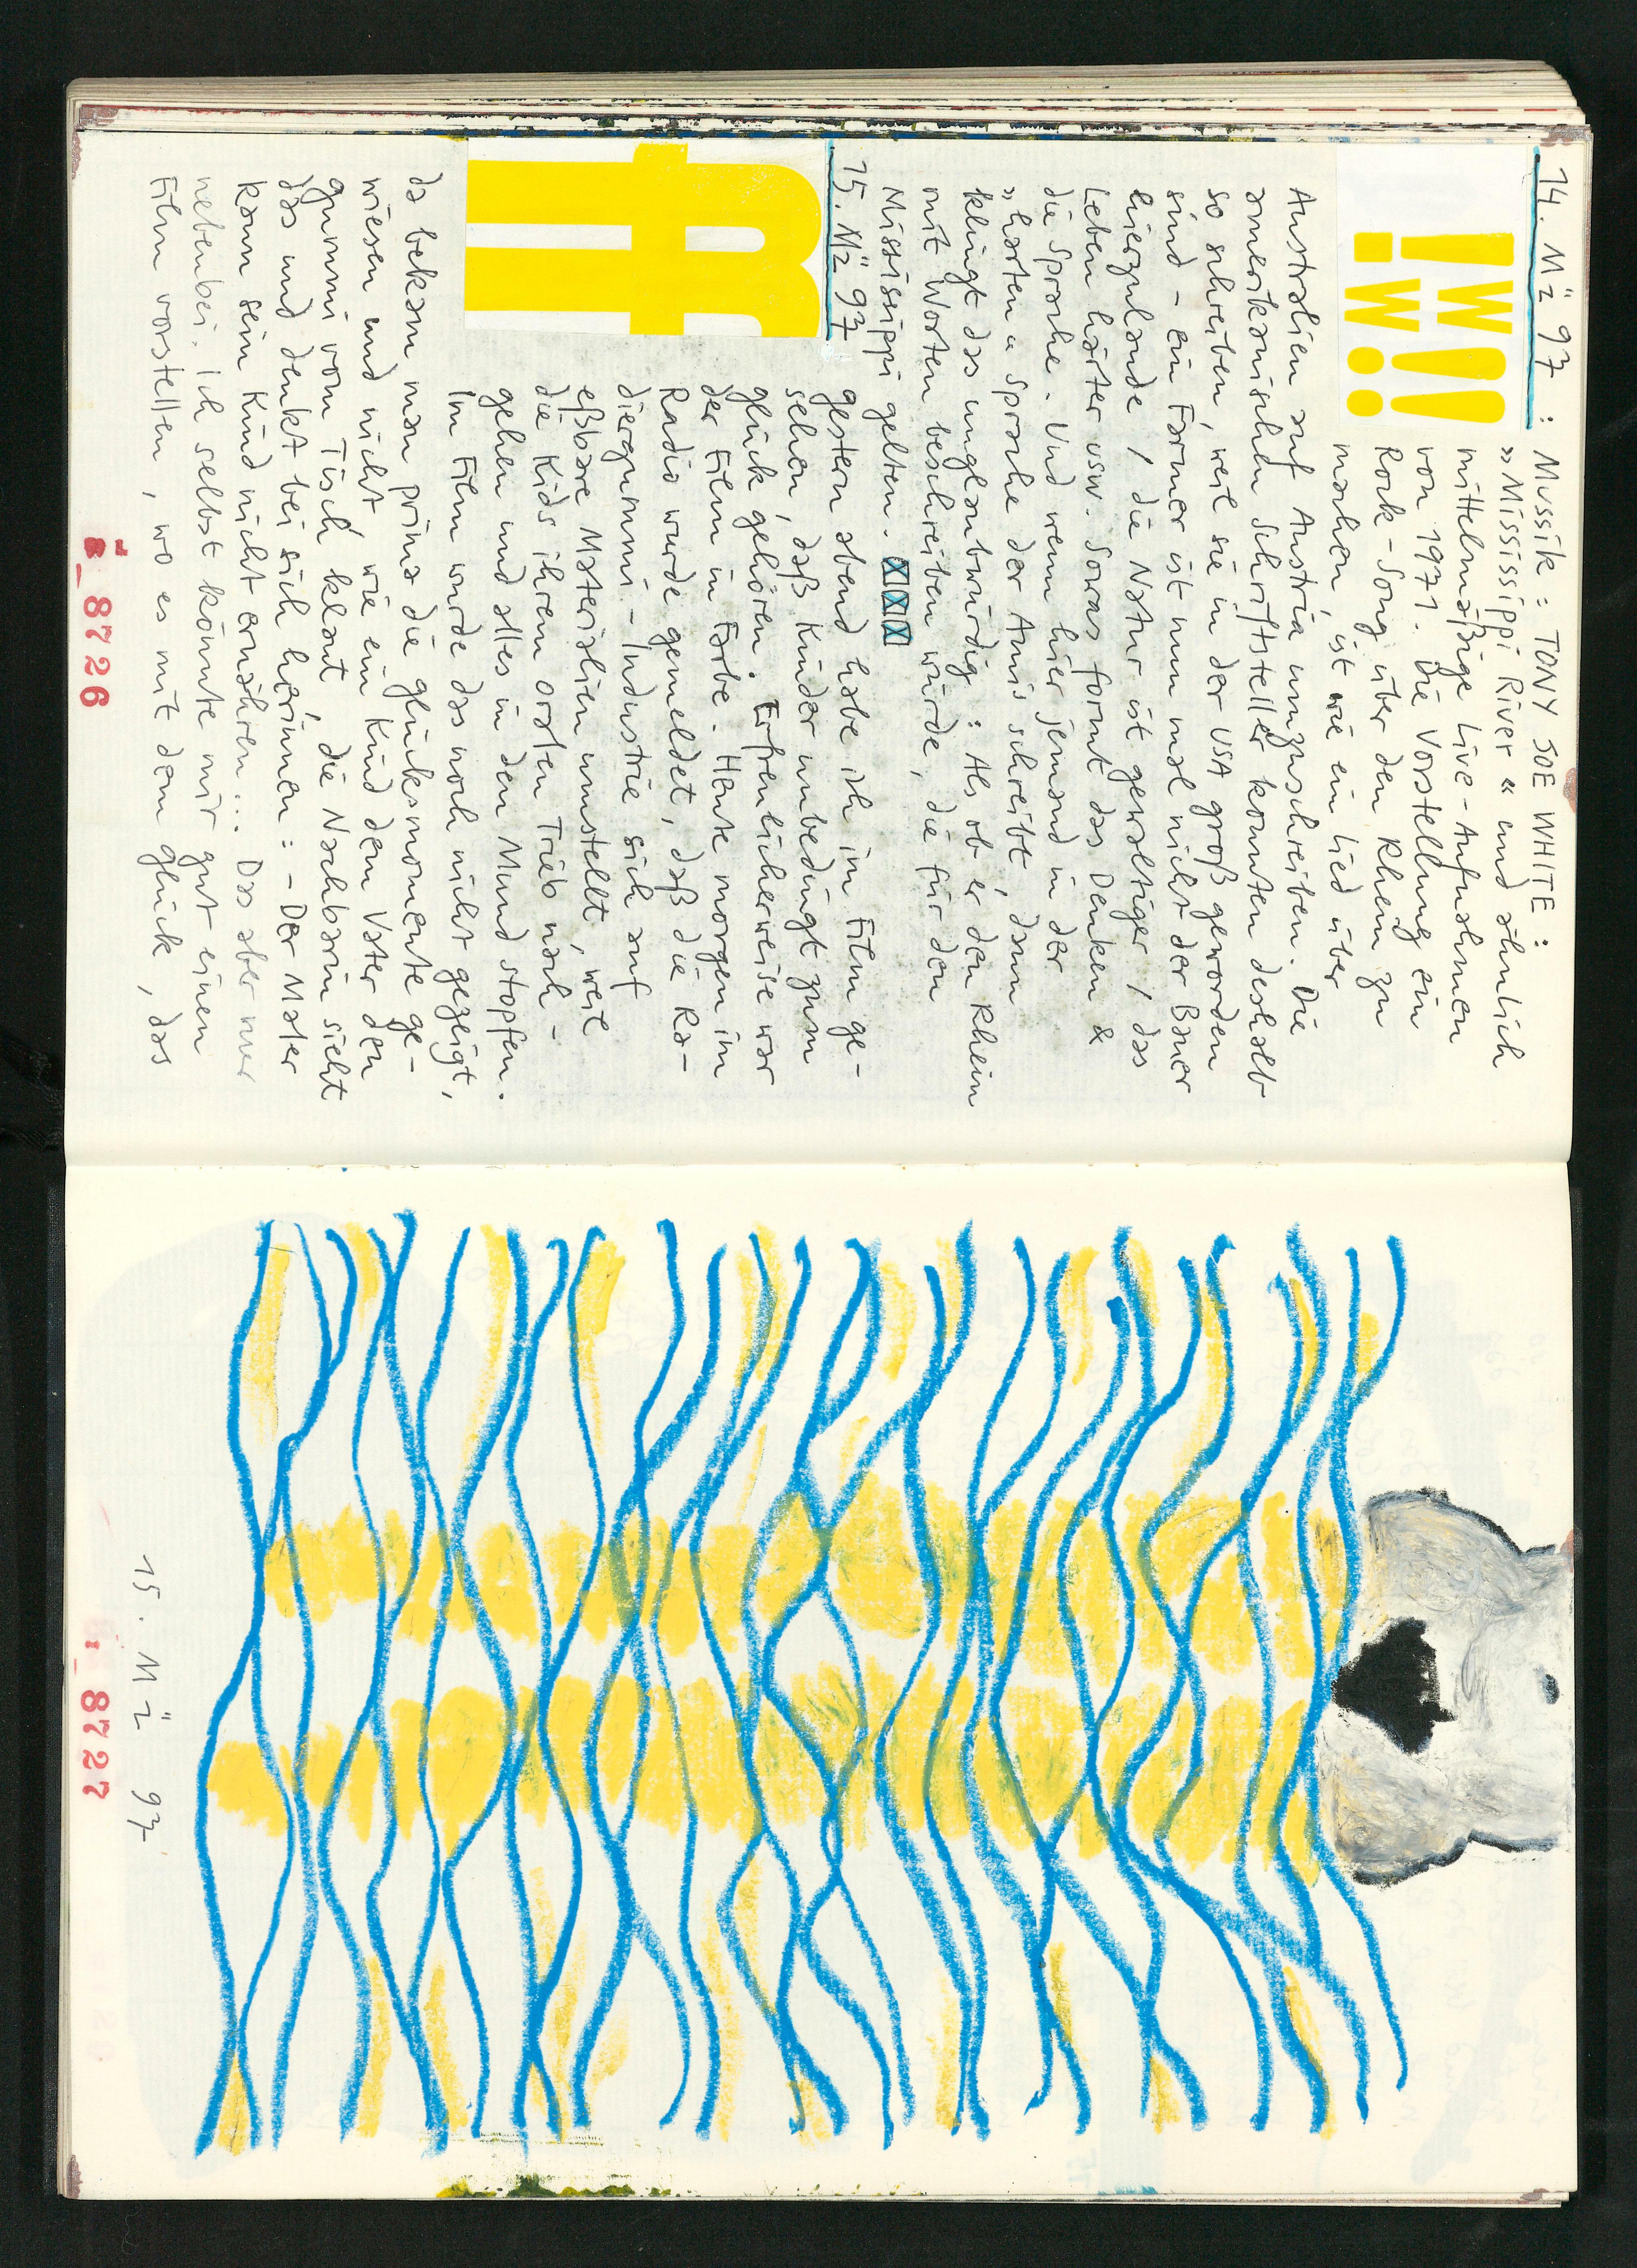 14. Mäz 97 : Mussik : TONY JOE WHITE :
»Mississippi River« und ähnlich
mittelmäßige Live-Aufnahmen
von 1971. Die Vorstellung ein
Rock-Song über den Rhein zu
machen, ist wie ein Lied über
!W!!
!W::
Australien auf Austria umzuschreiben. Die
amerikanischen Schriftsteller konnten deshalb
so schreiben, weil sie in der USA groß geworden
sind - ein Farmer ist nun mal nicht der Bauer
hierzulande / die Natur ist gewaltiger / das
Leben härter usw. Sowas formt das Denken &
die Sprache. Und wenn hier jemand in der
»harten« Sprache der Amis schreibt, dann
klingt das unglaubwürdig : Als ob er den Rhein
mit Worten beschreiben würde, die für den
Mississippi gelten.
15. Mäz 97
gestern abend habe ich im Film ge-
sehen, daß Kinder unbedingt zum
glück gehören. Erfreulicherweise war
der Film in Farbe. Heute morgen im
Radio wurde gemeldet, daß die Ra-
diergummi-Industrie sich auf
eßbare Materialien umstellt, weil
die Kids ihrem oralen Trieb nach-
gehen und alles in den Mund stopfen.
Im Film wurde das noch nicht gezeigt,
da bekam man prima die glücksmomente ge-
wiesen und nicht, wie ein Kind dem Vater den
gummi vom Tisch klaut, die Nachbarin sieht
das und denkt bei sich herinnen : - Der Mater
kann sein Kind nicht ernähren... Das aber nur
nebenbei. Ich selbst könnte mir gut einen
Film vorstellen, wo es mit dem glück, das
8726
15. Mäz 97
8727